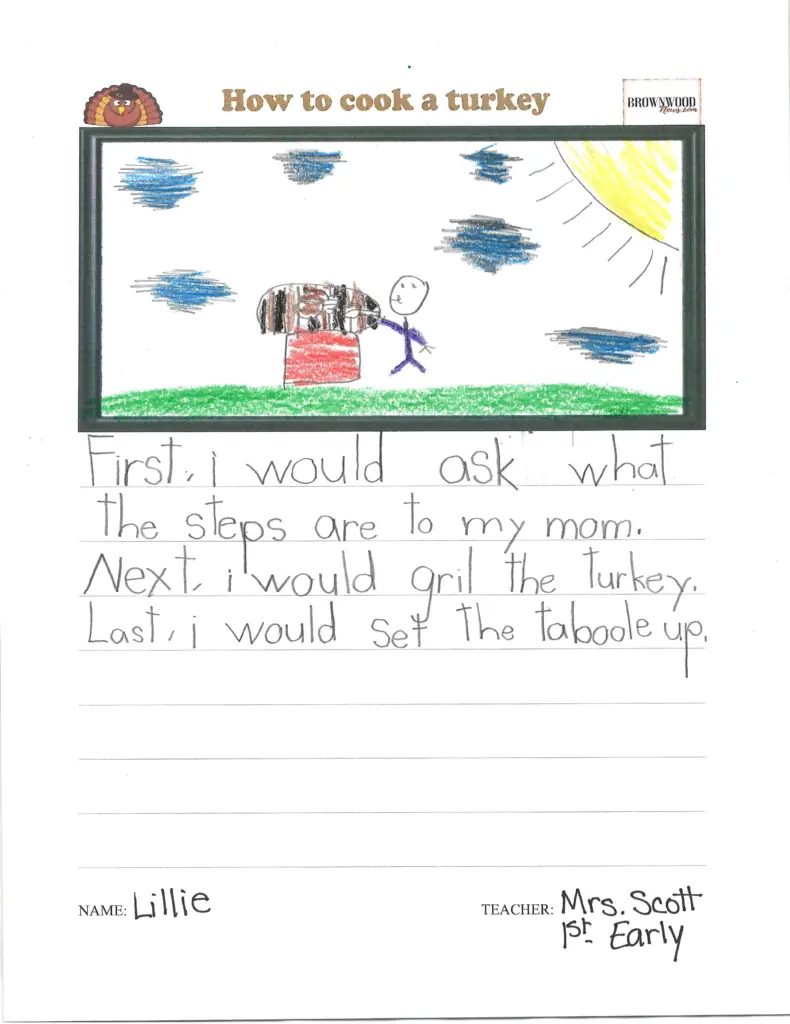 How to cook a turkey
BROWNWOOD
News.com
First, i would ask what
the steps are to my mom.
Next, i would gril the turkey.
Last, i would set the taboole up.
NAME: Lillie
TEACHER: Mrs. Scott
1st Early